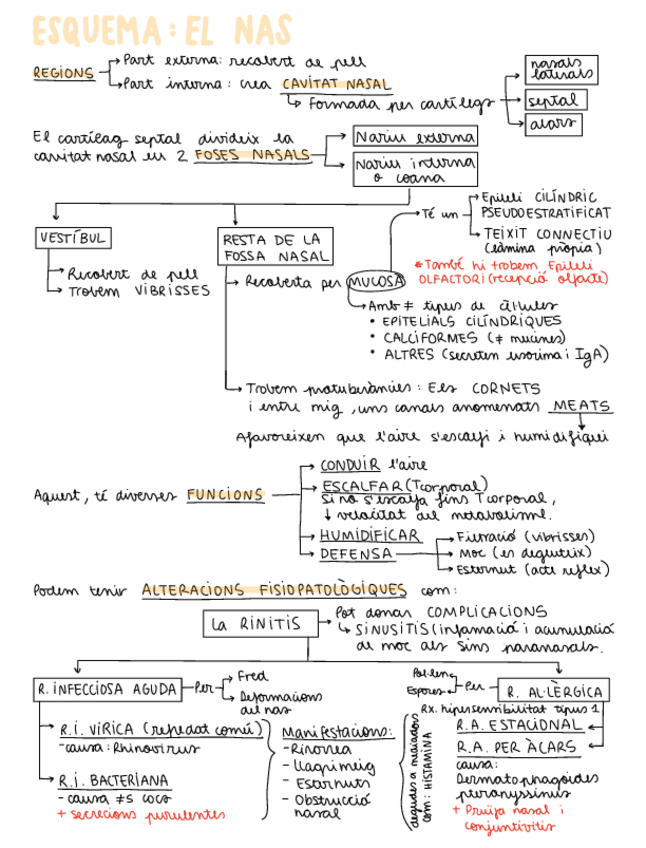 ESQUEMA: EL NAS
REGIONS
Part externa: recobert de pell
Part interna: crea CAVITAT NASAL
Formada per cartílegs
nasals
laterals
septal
alars
El cartílag septal divideix la
cavitat nasal en 2 FOSES NASALS
Nariu externa
Nariu interna
o coana
VESTÍBUL
Recobert de pell
Trobem VIBRISSES
RESTA DE LA
FOSSA NASAL
Recoberta per MUCOSA
Té un
Epiteli CILÍNDRIC
PSEUDOESTRATIFICAT
TEIXIT CONNECTIU
(làmina pròpia)
* També hi trobem Epiteli
OLFACTORI (recepció olfacte)
Amb ≠ tipus de cèl·lules
• EPITELIALS CILÍNDRIQUES
• CALCIFORMES (≠ mucines)
• ALTRES (secreten lisozima i IgA)
Trobem protuberàncies: Els CORNETS
i entre mig, uns canals anomenats MEATS
Afavoreixen que l'aire s'escalfi i humidifiqui
Aquest, té diverses FUNCIONS
CONDUIR l'aire
ESCALFAR (Tcorporal)
Si no s'escalfa fins Tcorporal,
↓ velocitat del metabolisme.
HUMIDIFICAR
DEFENSA
Filtració (vibrisses)
Moc (es degluteix)
Esternut (acte reflex)
Podem tenir ALTERACIONS FISIOPATOLÒGIQUES com:
La RINITIS
Pot donar COMPLICACIONS
SINUSITIS (inflamació i acumulació
de moc als sins paranasals.
R. INFECCIOSA AGUDA
Per
Fred
Deformacions
del nas
Pol·len
Espores
Per
R. AL·LÈRGICA
Rx. hipersensibilitat tipus 1
R.I. VÍRICA (refredat comú)
- causa: Rhinovirus
R.I. BACTERIANA
- causa ≠s cocs
+ secrecions purulentes
Manifestacions:
- Rinorrea
- Llagrimeig
- Esternuts
- Obstrucció
nasal
degudes a mediadors
com: HISTAMINA
R.A. ESTACIONAL
R.A. PER ÀCARS
causa:
Dermatophagoides
pteronyssinus
+ Pruïja nasal i
conjuntivitis